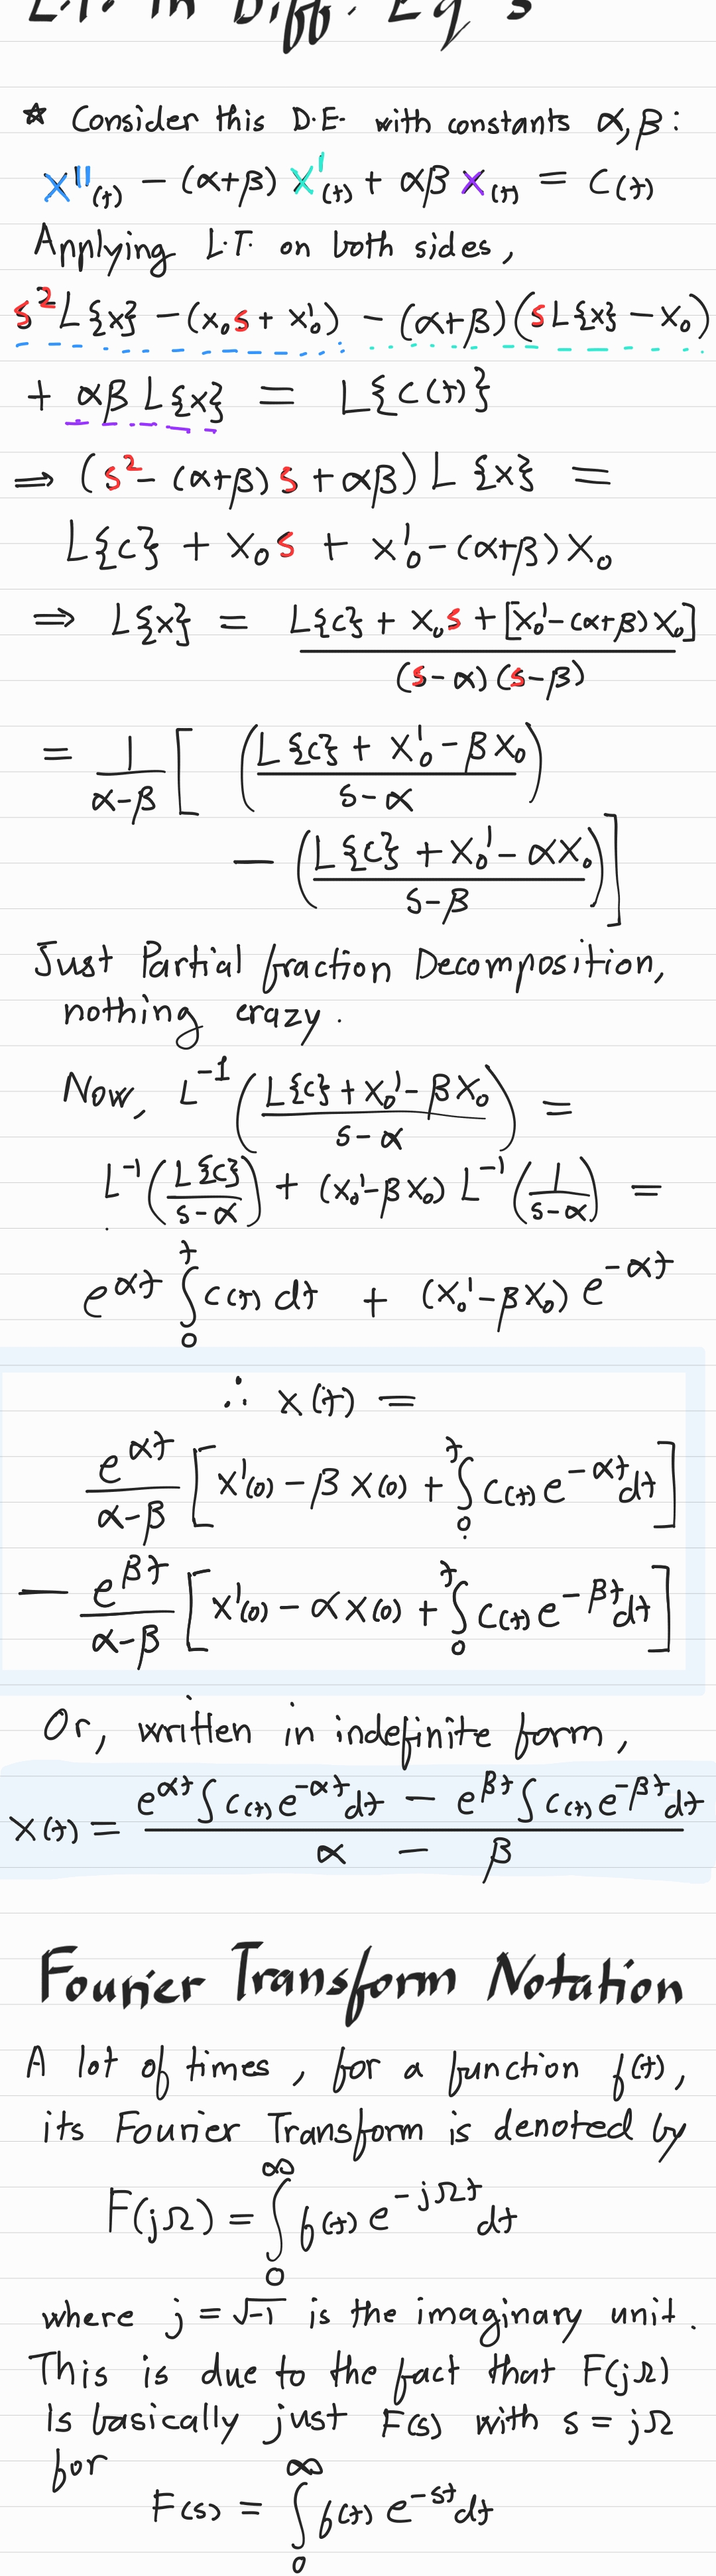 L.T. in Diff. Eq's
☆ Consider this D.E. with constants α, β :
x''(t) − (α+β) x'(t) + αβ x(t) = C(t)
Applying L.T. on both sides,
s² L{x} − (x₀s + x₀') − (α+β)(sL{x} − x₀)
+ αβ L{x} = L{c(t)}
⇒ (s² − (α+β) s + αβ) L{x} =
L{c} + x₀s + x₀' − (α+β) x₀
⇒ L{x} = (L{c} + x₀s + [x₀' − (α+β) x₀]) / ((s−α)(s−β))
= 1/(α−β) [ ((L{c} + x₀' − βx₀)/(s−α))
− ((L{c} + x₀' − αx₀)/(s−β)) ]
Just Partial fraction Decomposition,
nothing crazy.
Now, L⁻¹((L{c} + x₀' − βx₀)/(s−α)) =
L⁻¹(L{c}/(s−α)) + (x₀' − βx₀) L⁻¹(1/(s−α)) =
e^(αt) ∫₀ᵗ c(t) dt + (x₀' − βx₀) e^(−αt)
∴ x(t) =
e^(αt)/(α−β) [x'(0) − β x(0) + ∫₀ᵗ c(t) e^(−αt) dt]
− e^(βt)/(α−β) [x'(0) − α x(0) + ∫₀ᵗ c(t) e^(−βt) dt]
Or, written in indefinite form,
x(t) = (e^(αt) ∫ c(t) e^(−αt) dt − e^(βt) ∫ c(t) e^(−βt) dt) / (α − β)
Fourier Transform Notation
A lot of times, for a function f(t),
its Fourier Transform is denoted by
F(jΩ) = ∫₀^∞ f(t) e^(−jΩt) dt
where j = √−1 is the imaginary unit.
This is due to the fact that F(jΩ)
is basically just F(s) with s = jΩ
for
F(s) = ∫₀^∞ f(t) e^(−st) dt